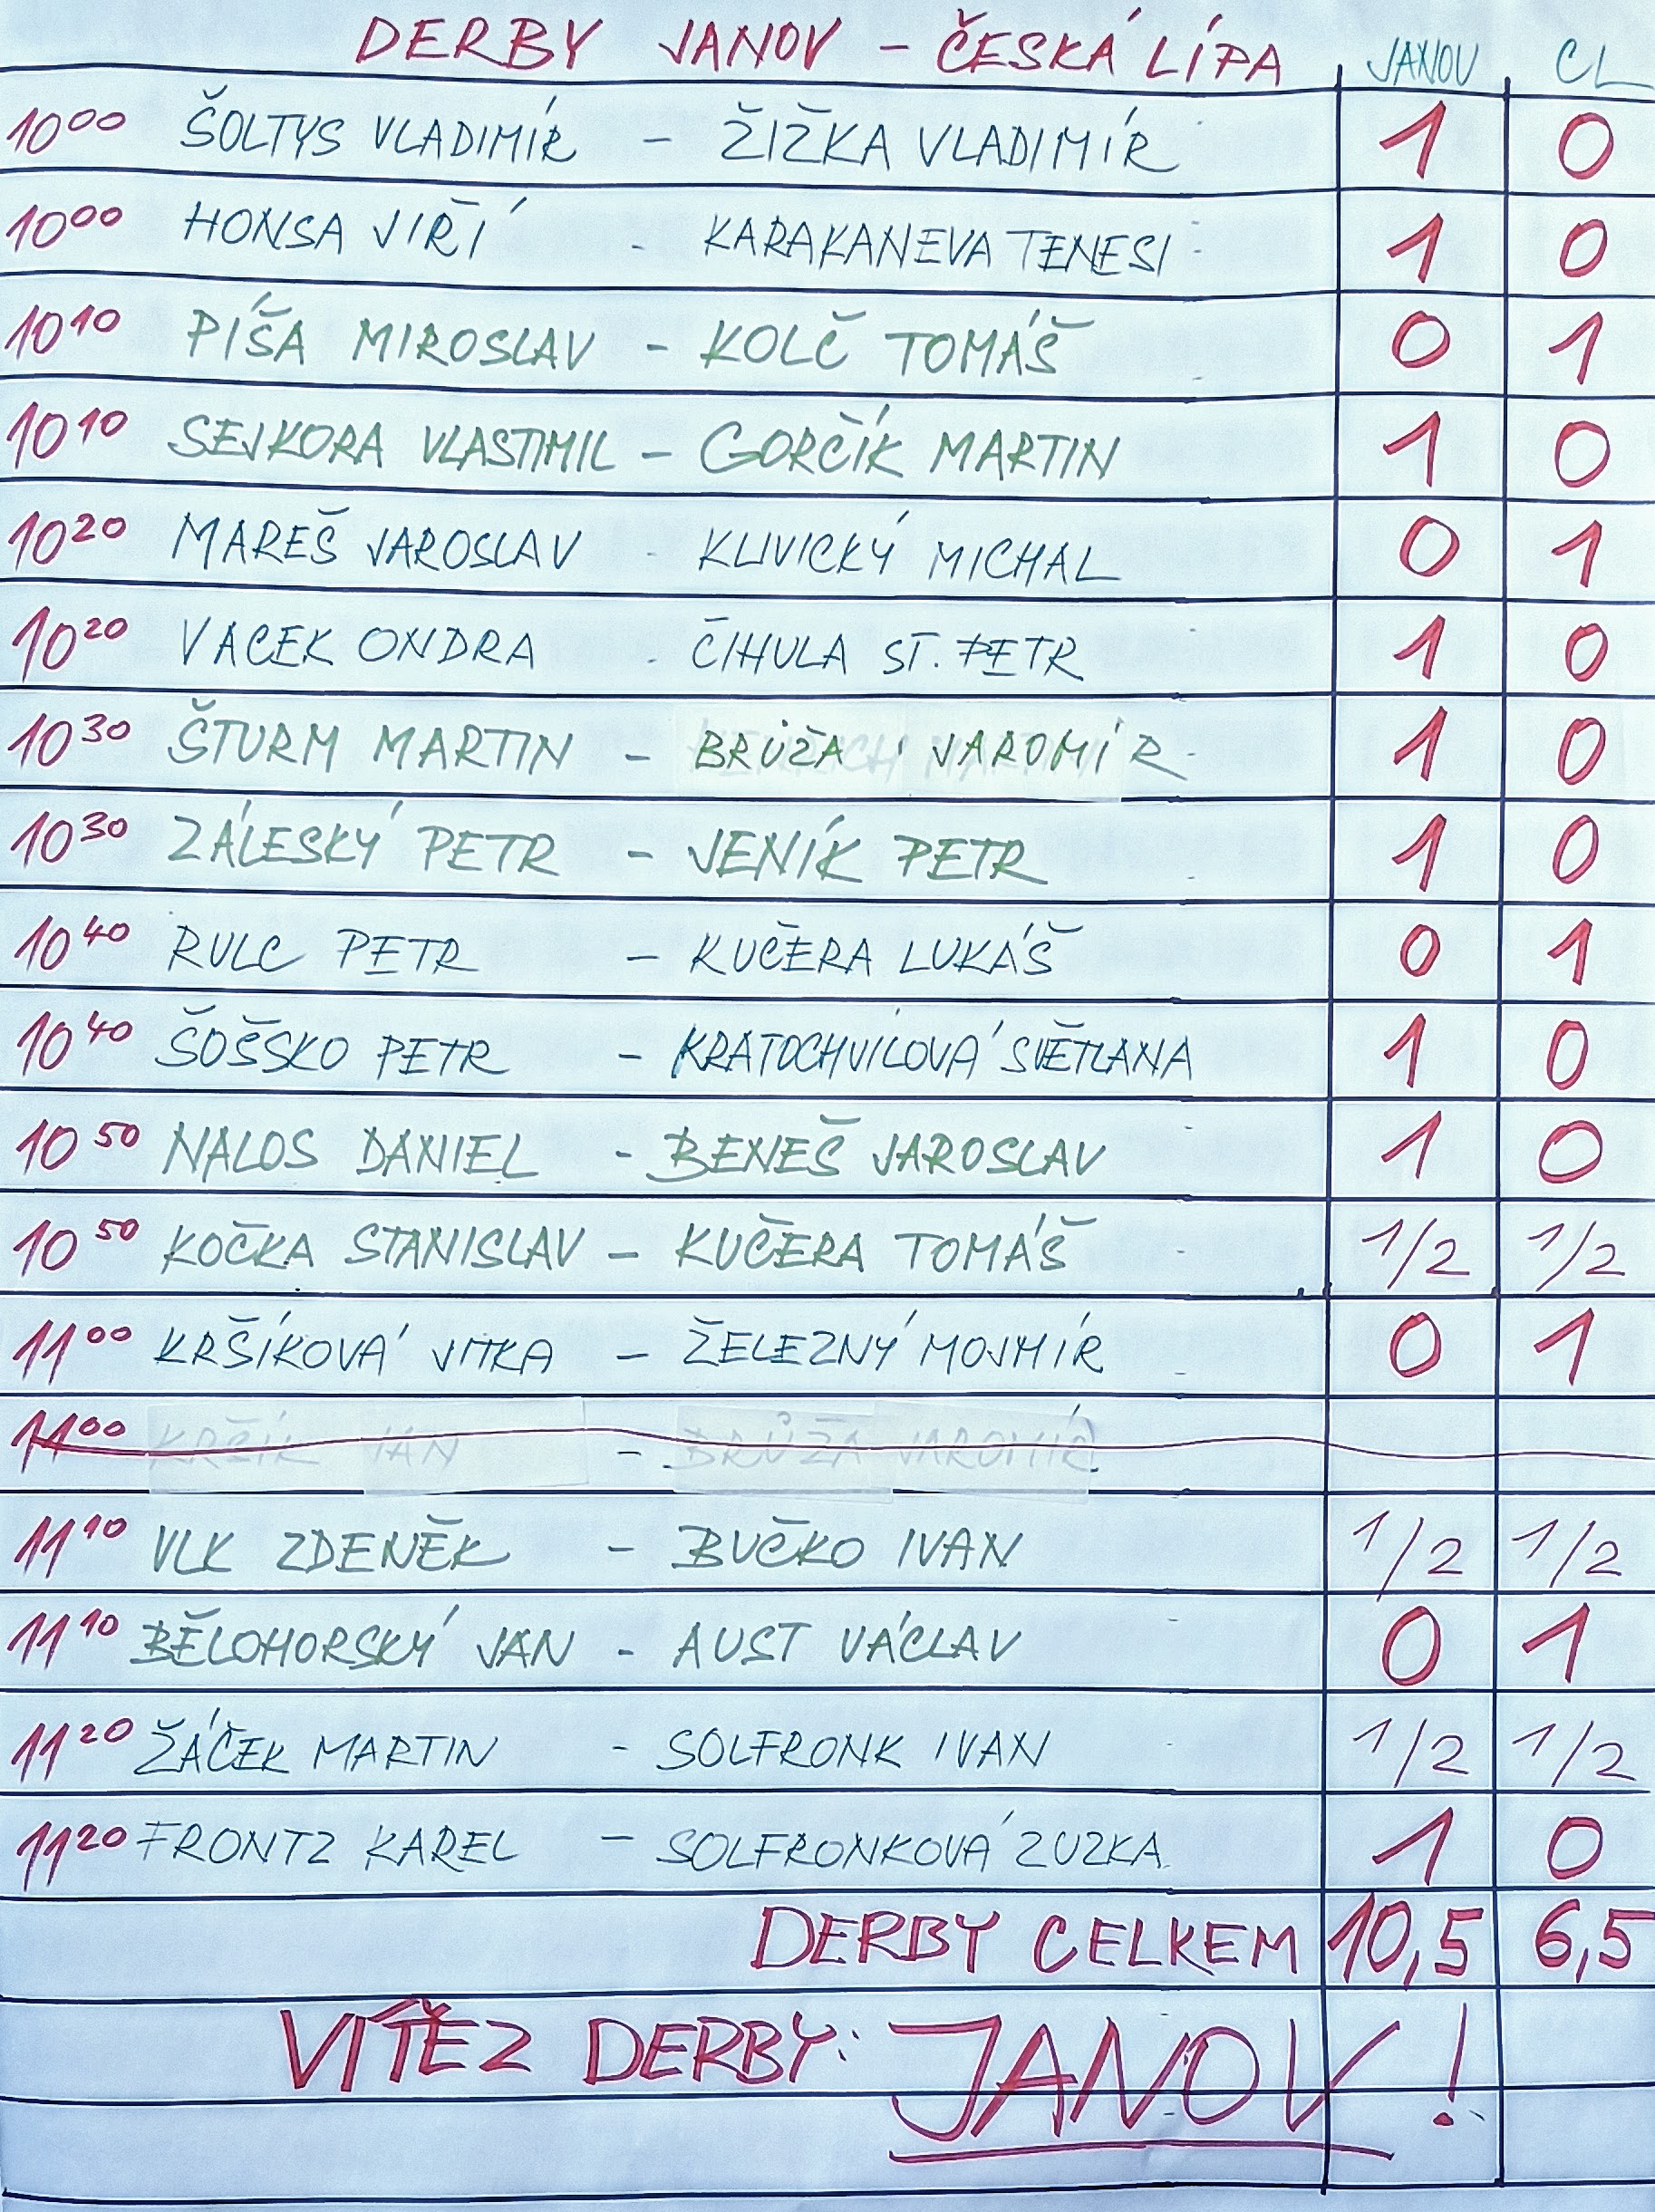 DERBY JANOV – ČESKÁ LÍPA JANOV CL
10⁰⁰ ŠOLTYS VLADIMÍR – ŽIŽKA VLADIMÍR 1 0
10⁰⁰ HONSA JIŘÍ - KARAKANEVA TENESI 1 0
10¹⁰ PÍŠA MIROSLAV - KOLČ TOMÁŠ 0 1
10¹⁰ SEJKORA VLASTIMIL – GORČÍK MARTIN 1 0
10²⁰ MAREŠ JAROSLAV - KLIVICKÝ MICHAL 0 1
10²⁰ VACEK ONDRA - ČIHULA ST. PETR 1 0
10³⁰ ŠTURM MARTIN – BRŮŽA JAROMÍR 1 0
10³⁰ ZÁLESKÝ PETR – JENÍK PETR 1 0
10⁴⁰ RULC PETR – KUČERA LUKÁŠ 0 1
10⁴⁰ ŠOŠSKO PETR – KRATOCHVÍLOVÁ SVĚTLANA 1 0
10⁵⁰ NALOS DANIEL - BENEŠ JAROSLAV 1 0
10⁵⁰ KOČKA STANISLAV – KUČERA TOMÁŠ 1/2 1/2
11⁰⁰ KRŠÍKOVÁ JITKA – ŽELEZNÝ MOJMÍR 0 1
11⁰⁰ KRŠÍK JAN - BRŮŽA JAROMÍR
11¹⁰ VLK ZDENĚK – BUČKO IVAN 1/2 1/2
11¹⁰ BĚLOHORSKÝ JAN - AUST VÁCLAV 0 1
11²⁰ ŽÁČEK MARTIN - SOLFRONK IVAN 1/2 1/2
11²⁰ FRONTZ KAREL – SOLFRONKOVÁ ZUZKA 1 0
DERBY CELKEM 10,5 6,5
VÍTĚZ DERBY: JANOV!